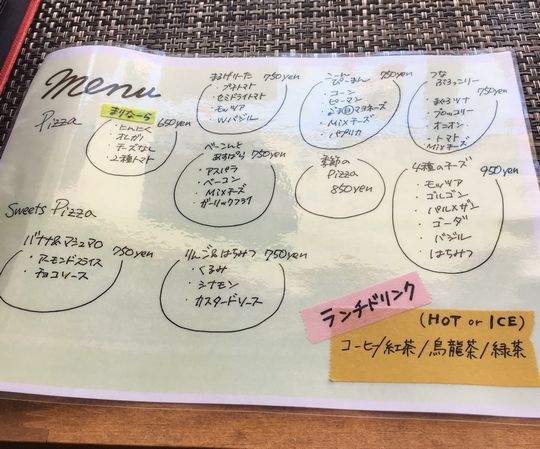 menu
Pizza
まりなーら 650yen
・にんにく
・オレガノ
・チーズなし
・2種トマト
まるげりーた 750yen
・プチトマト
・セミドライトマト
・モッツァ
・Wバジル
こーん
ぴーまん 750yen
・コーン
・ピーマン
・マヨネーズ
・MIXチーズ
・パプリカ
つな
ぶろっこりー 750yen
・まぐろツナ
・ブロッコリー
・オニオン
・トマト
・MIXチーズ
べーこんと
あすぱら 750yen
・アスパラ
・ベーコン
・MIXチーズ
・ガーリックフライ
季節の
Pizza
850yen
4種のチーズ 950yen
・モッツァ
・ゴルゴン
・パルメザン
・ゴーダ
・バジル
・はちみつ
Sweets Pizza
バナナ&マシュマロ 750yen
・アーモンドスライス
・チョコソース
りんご&はちみつ 750yen
・くるみ
・シナモン
・カスタードソース
ランチドリンク
(HOT or ICE)
コーヒー/紅茶/烏龍茶/緑茶